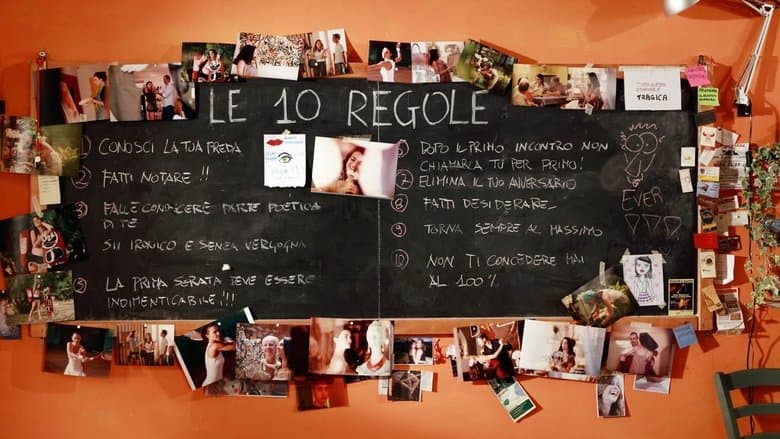 LE 10 REGOLE
1 CONOSCI LA TUA PREDA
2 FATTI NOTARE !!
3 FALLE CONOSCERE PARTE POETICA
DI TE
SII IRONICO E SENZA VERGOGNA
5 LA PRIMA SERATA DEVE ESSERE
INDIMENTICABILE!!!
6 DOPO IL PRIMO INCONTRO NON
CHIAMARLA TU PER PRIMO!
7 ELIMINA IL TUO AVVERSARIO
8 FATTI DESIDERARE
9 TORNA SEMPRE AL MASSIMO
10 NON TI CONCEDERE MAI
AL 100%
EVER
TRAGICA